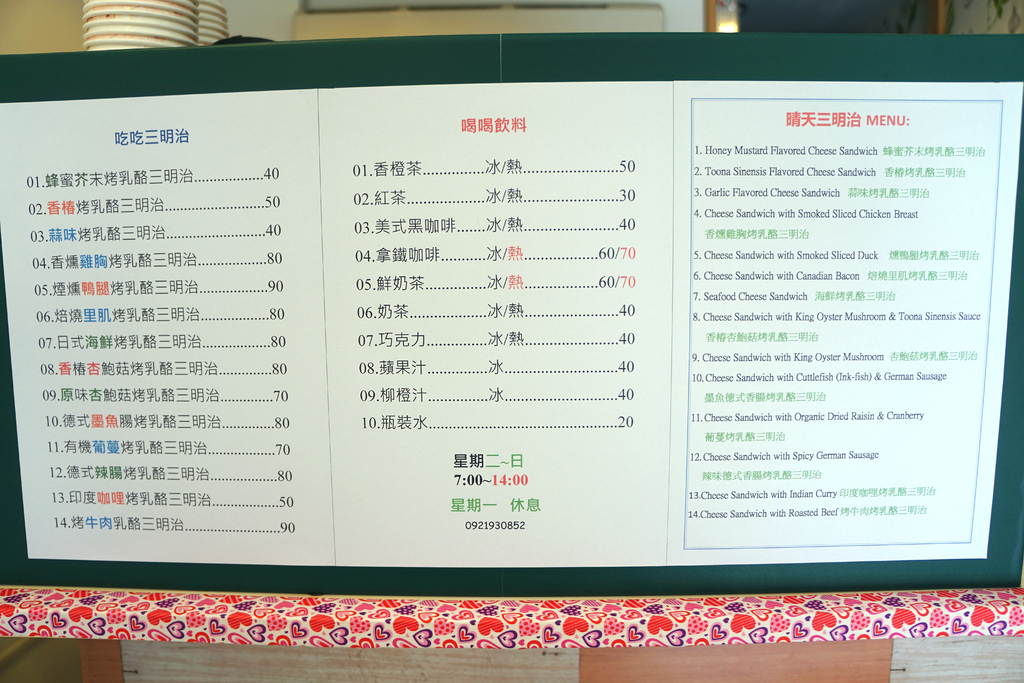 吃吃三明治
01.蜂蜜芥末烤乳酪三明治..................40
02.香椿烤乳酪三明治..........................50
03.蒜味烤乳酪三明治..........................40
04.香燻雞胸烤乳酪三明治..................80
05.煙燻鴨腿烤乳酪三明治..................90
06.焙燒里肌烤乳酪三明治..................80
07.日式海鮮烤乳酪三明治..................80
08.香椿杏鮑菇烤乳酪三明治..............80
09.原味杏鮑菇烤乳酪三明治..............70
10.德式墨魚腸烤乳酪三明治..............80
11.有機葡蔓烤乳酪三明治..................70
12.德式辣腸烤乳酪三明治..................80
13.印度咖哩烤乳酪三明治..................50
14.烤牛肉乳酪三明治..........................90
喝喝飲料
01.香橙茶...............冰/熱..........................50
02.紅茶...................冰/熱..........................30
03.美式黑咖啡.......冰/熱..........................40
04.拿鐵咖啡...........冰/熱.....................60/70
05.鮮奶茶...............冰/熱.....................60/70
06.奶茶...................冰/熱..........................40
07.巧克力...............冰/熱..........................40
08.蘋果汁...............冰..............................40
09.柳橙汁...............冰..............................40
10.瓶裝水..................................................20
星期二~日
7:00~14:00
星期一 休息
0921930852
晴天三明治 MENU:
1. Honey Mustard Flavored Cheese Sandwich 蜂蜜芥末烤乳酪三明治
2. Toona Sinensis Flavored Cheese Sandwich 香椿烤乳酪三明治
3. Garlic Flavored Cheese Sandwich 蒜味烤乳酪三明治
4. Cheese Sandwich with Smoked Sliced Chicken Breast
香燻雞胸烤乳酪三明治
5. Cheese Sandwich with Smoked Sliced Duck 燻鴨腿烤乳酪三明治
6. Cheese Sandwich with Canadian Bacon 焙燒里肌烤乳酪三明治
7. Seafood Cheese Sandwich 海鮮烤乳酪三明治
8. Cheese Sandwich with King Oyster Mushroom & Toona Sinensis Sauce
香椿杏鮑菇烤乳酪三明治
9. Cheese Sandwich with King Oyster Mushroom 杏鮑菇烤乳酪三明治
10. Cheese Sandwich with Cuttlefish (Ink-fish) & German Sausage
墨魚德式香腸烤乳酪三明治
11. Cheese Sandwich with Organic Dried Raisin & Cranberry
葡蔓烤乳酪三明治
12. Cheese Sandwich with Spicy German Sausage
辣味德式香腸烤乳酪三明治
13.Cheese Sandwich with Indian Curry 印度咖哩烤乳酪三明治
14.Cheese Sandwich with Roasted Beef 烤牛肉烤乳酪三明治